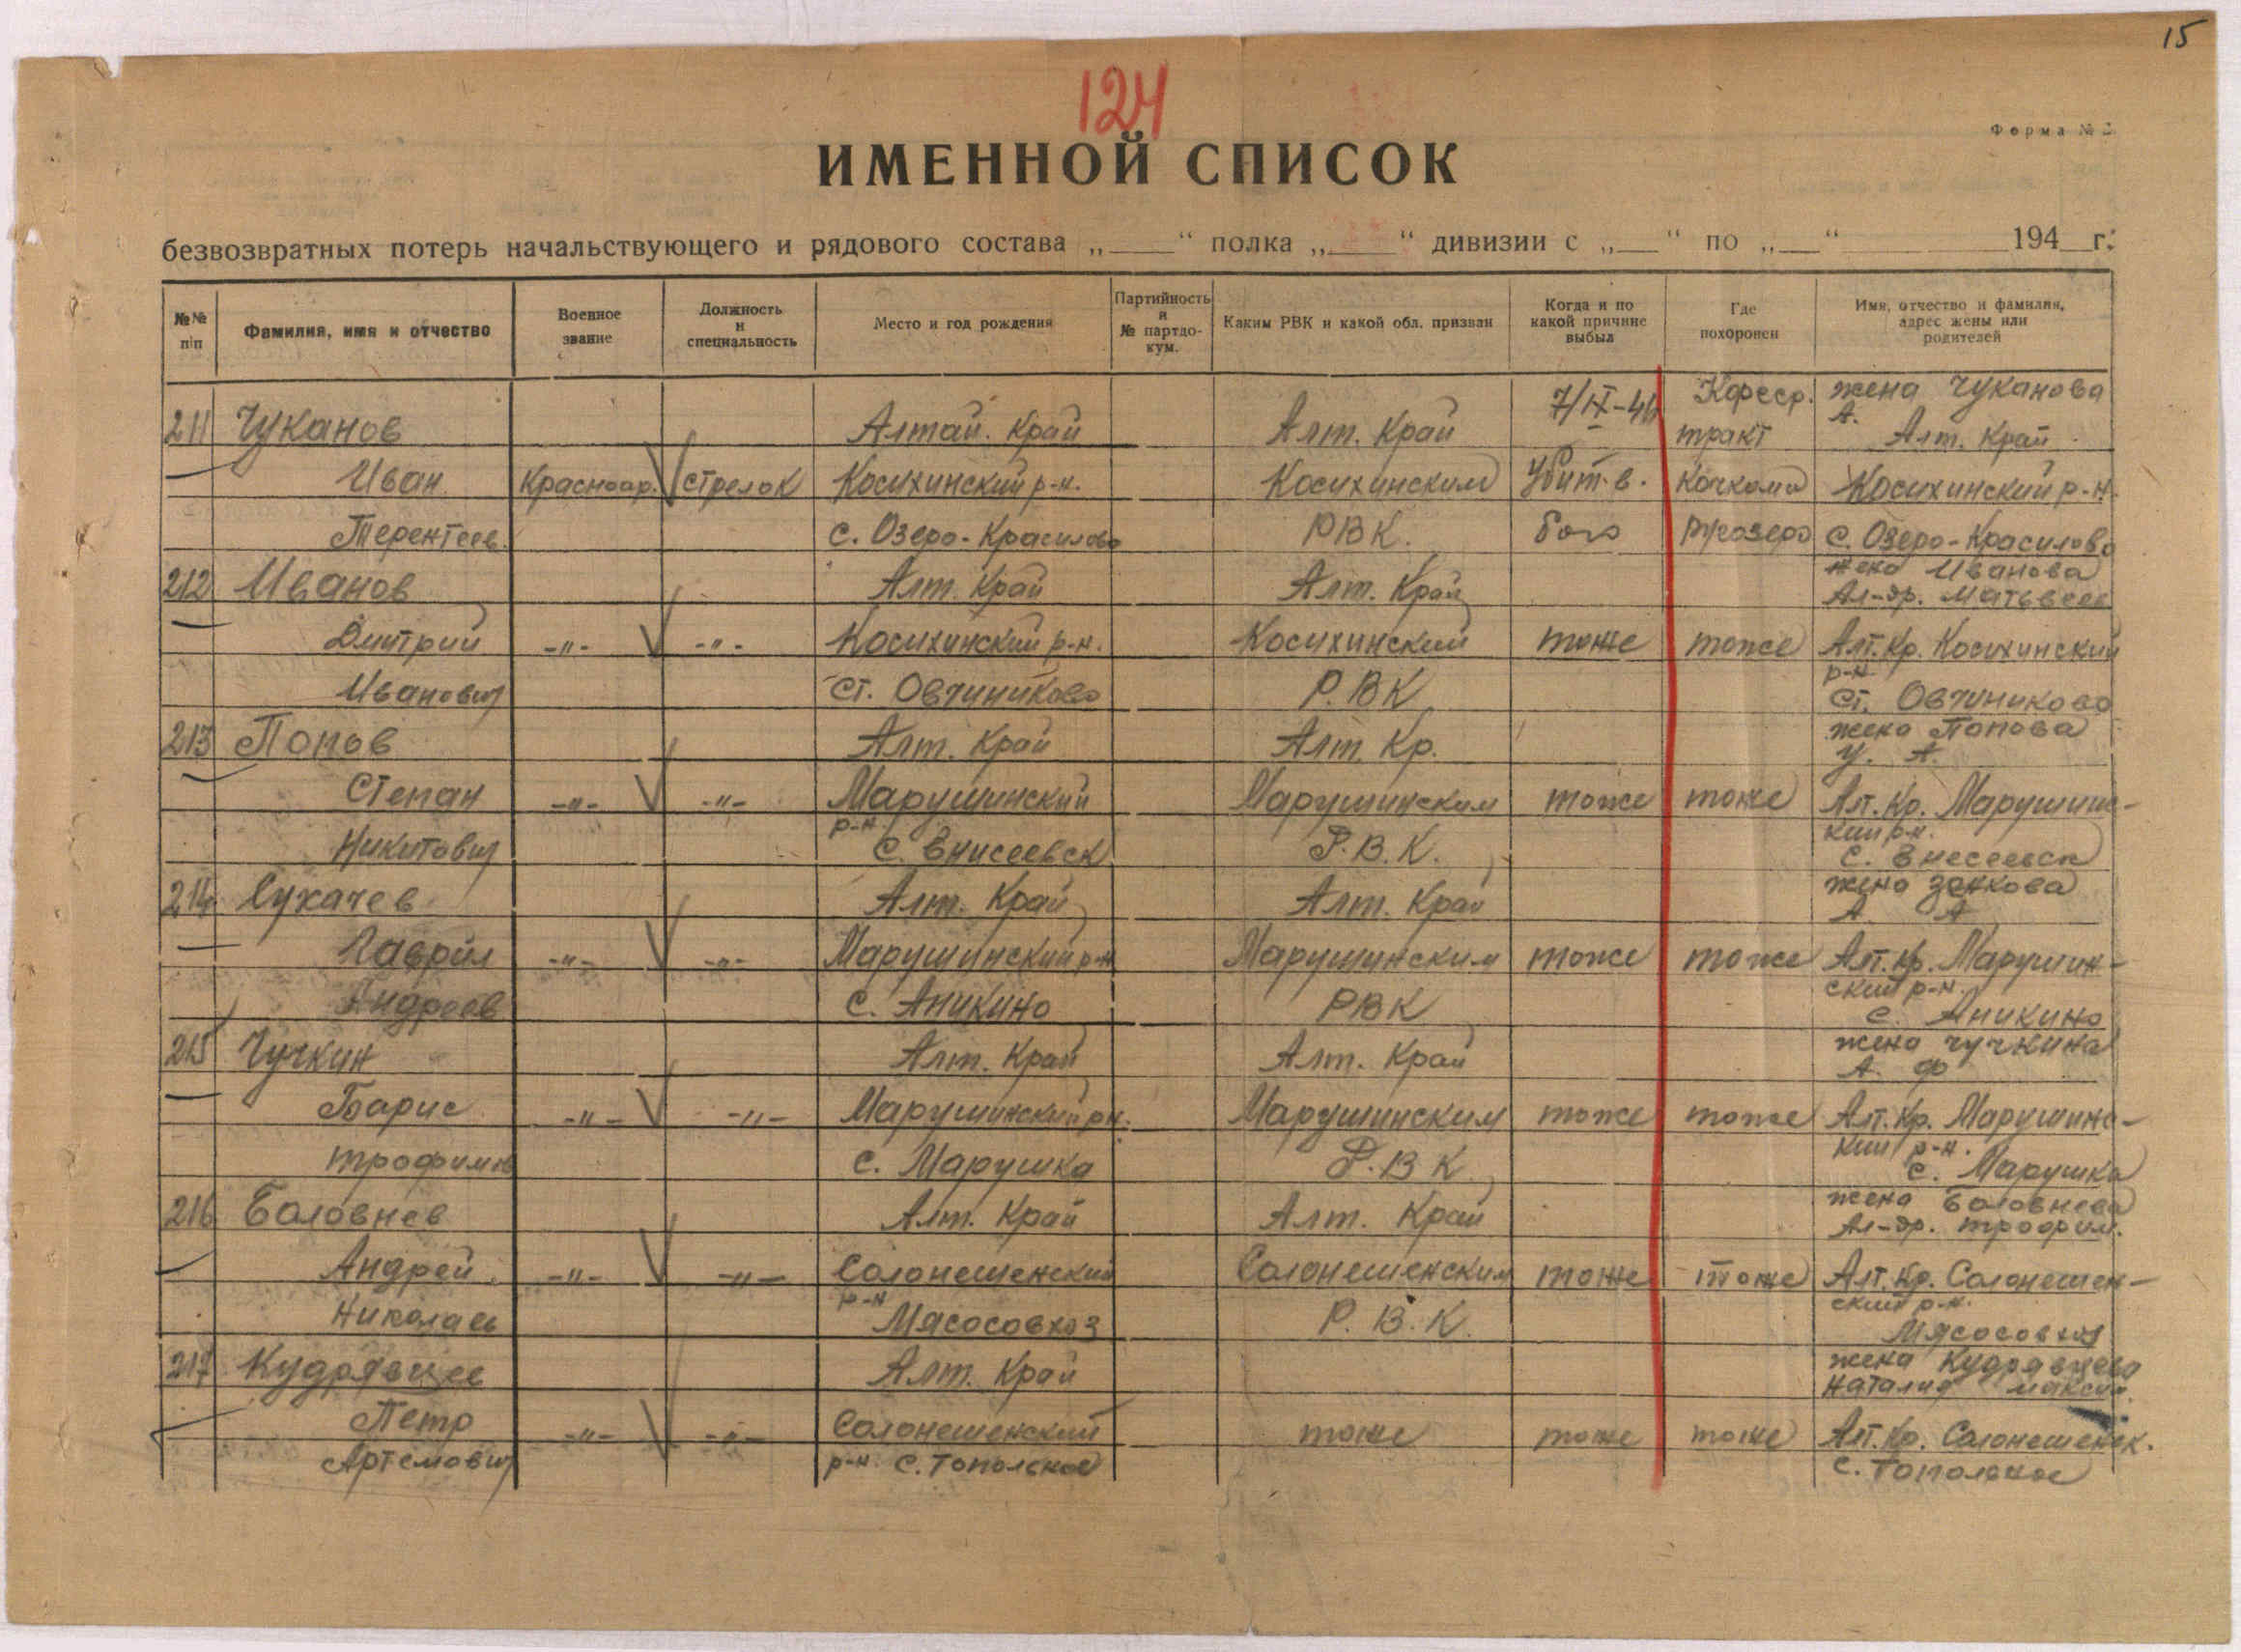 15
124
Форма № 2
ИМЕННОЙ СПИСОК
безвозвратных потерь начальствующего и рядового состава „____“ полка „____“ дивизии с „___“ по „___“ ________ 194__г.
№№ п/п
Фамилия, имя и отчество
Военное звание
Должность и специальность
Место и год рождения
Партийность и № партдокум.
Каким РВК и какой обл. призван
Когда и по какой причине выбыл
Где похоронен
Имя, отчество и фамилия, адрес жены или родителей
7/IX-41 Кореср. жена Чуканова
211 Чуканов Алтай. Край Алт. Край тракт А. Алт. Край
Иван Красноар. стрелок Косихинский р-н. Косихинским Убит в. Кочкома Косихинский р-н.
Терентеев. с. Озеро-Красилово РВК. бою с. Озеро-Красилово
жена Иванова
212 Иванов Алт. Край Алт. Край Ал-др. Матвеев
Дмитрий -"- -"- Косихинский р-н. Косихинский тоже тоже Алт. Кр. Косихинский
р-н
Иванович ст. Овчиниково Р.ВК ст. Овчиниково
жена Попова
213 Попов Алт. Край Алт. Кр. У. А.
Степан -"- -"- Марушинский Марушинским тоже тоже Алт. Кр. Марушинс-
р-н кий р-н.
Никитович с. Енисеевск Р.В.К. с. Енесеевск
214 Сухачев Алт. Край Алт. Край жена
А. А
Гаврил -"- -"- Марушинский р-н Марушинским тоже тоже Алт. Кр. Марушин-
ский р-н.
Андреев с. Аникино РВК с. Аникино
жена Чучкина
215 Чучкин Алт. Край Алт. Край А. Ф
Барис -"- -"- Марушинский рн. Марушинским тоже тоже Алт. Кр. Марушинс-
кий р-н.
трофимов с. Марушка Р.ВК с. Марушка
жена Баловнева
216 Баловнев Алт. Край Алт. Край Ал-др. трофим.
Андрей -"- -"- Солонешенский Солонешенским тоже тоже Алт. Кр. Солонешен-
р-н ский р-н.
Николаев Мясосовхоз Р.В.К. Мясосовхоз
жена Кудрявцева
217 Кудрявцев Алт. Край Наталия Максим.
Петр -"- -"- Солонешенский тоже тоже тоже Алт. Кр. Солонешенск.
Артемович р-н. с. Топольское с. Топольное